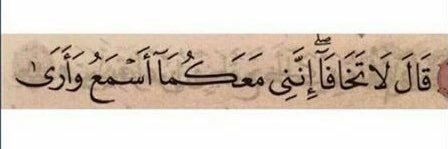 قَالَ لَا تَخَافَآ ۖ إِنَّنِى مَعَكُمَآ أَسْمَعُ وَأَرَىٰ